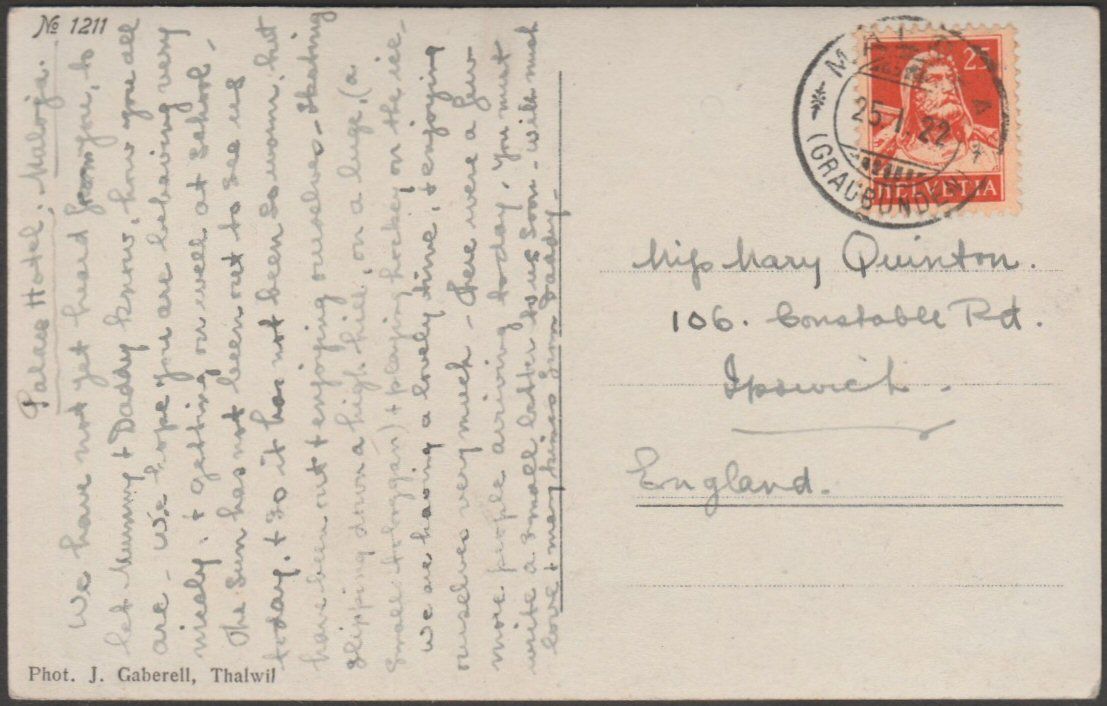 No 1211
Palace Hotel, Maloja.
We have not yet heard from you, to
let Mummy & Daddy know, how you all
are - We hope you are behaving very
nicely, & getting on well at school -
The Sun has not been out to see us
today, & so it has not been so warm, but
have been out & enjoying ourselves - Skating
slipping down a high hill, on a luge, (a
small toboggan) & playing hockey on the ice -
We are having a lovely time, & enjoying
ourselves very much - There were a few
more people arriving today, You must
write a small letter to us soon - with much
love & many kisses from Daddy -
Phot. J. Gaberell, Thalwil
25
HELVETIA
25.I.22
(GRAUBÜNDEN)
Miss Mary Quinton.
106. Constable Rd.
Ipswich.
England.